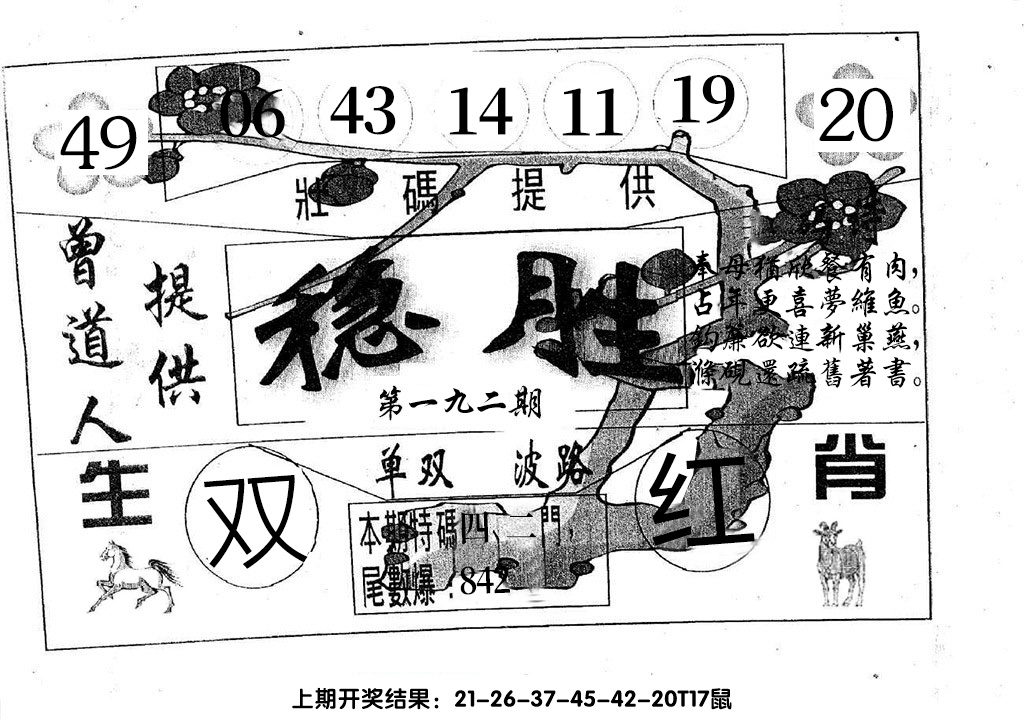 49 06 43 14 11 19 20
壯碼提供
曾道人
提供
稳胜
第一九二期
奉母猶欣餐有肉，
占年更喜夢維魚。
鈎簾欲連新巢燕，
滌硯還疏舊著書。
单双 波路
生 双 红 肖
本期特碼四、二門，
尾數爆：842
上期开奖结果：21-26-37-45-42-20T17鼠